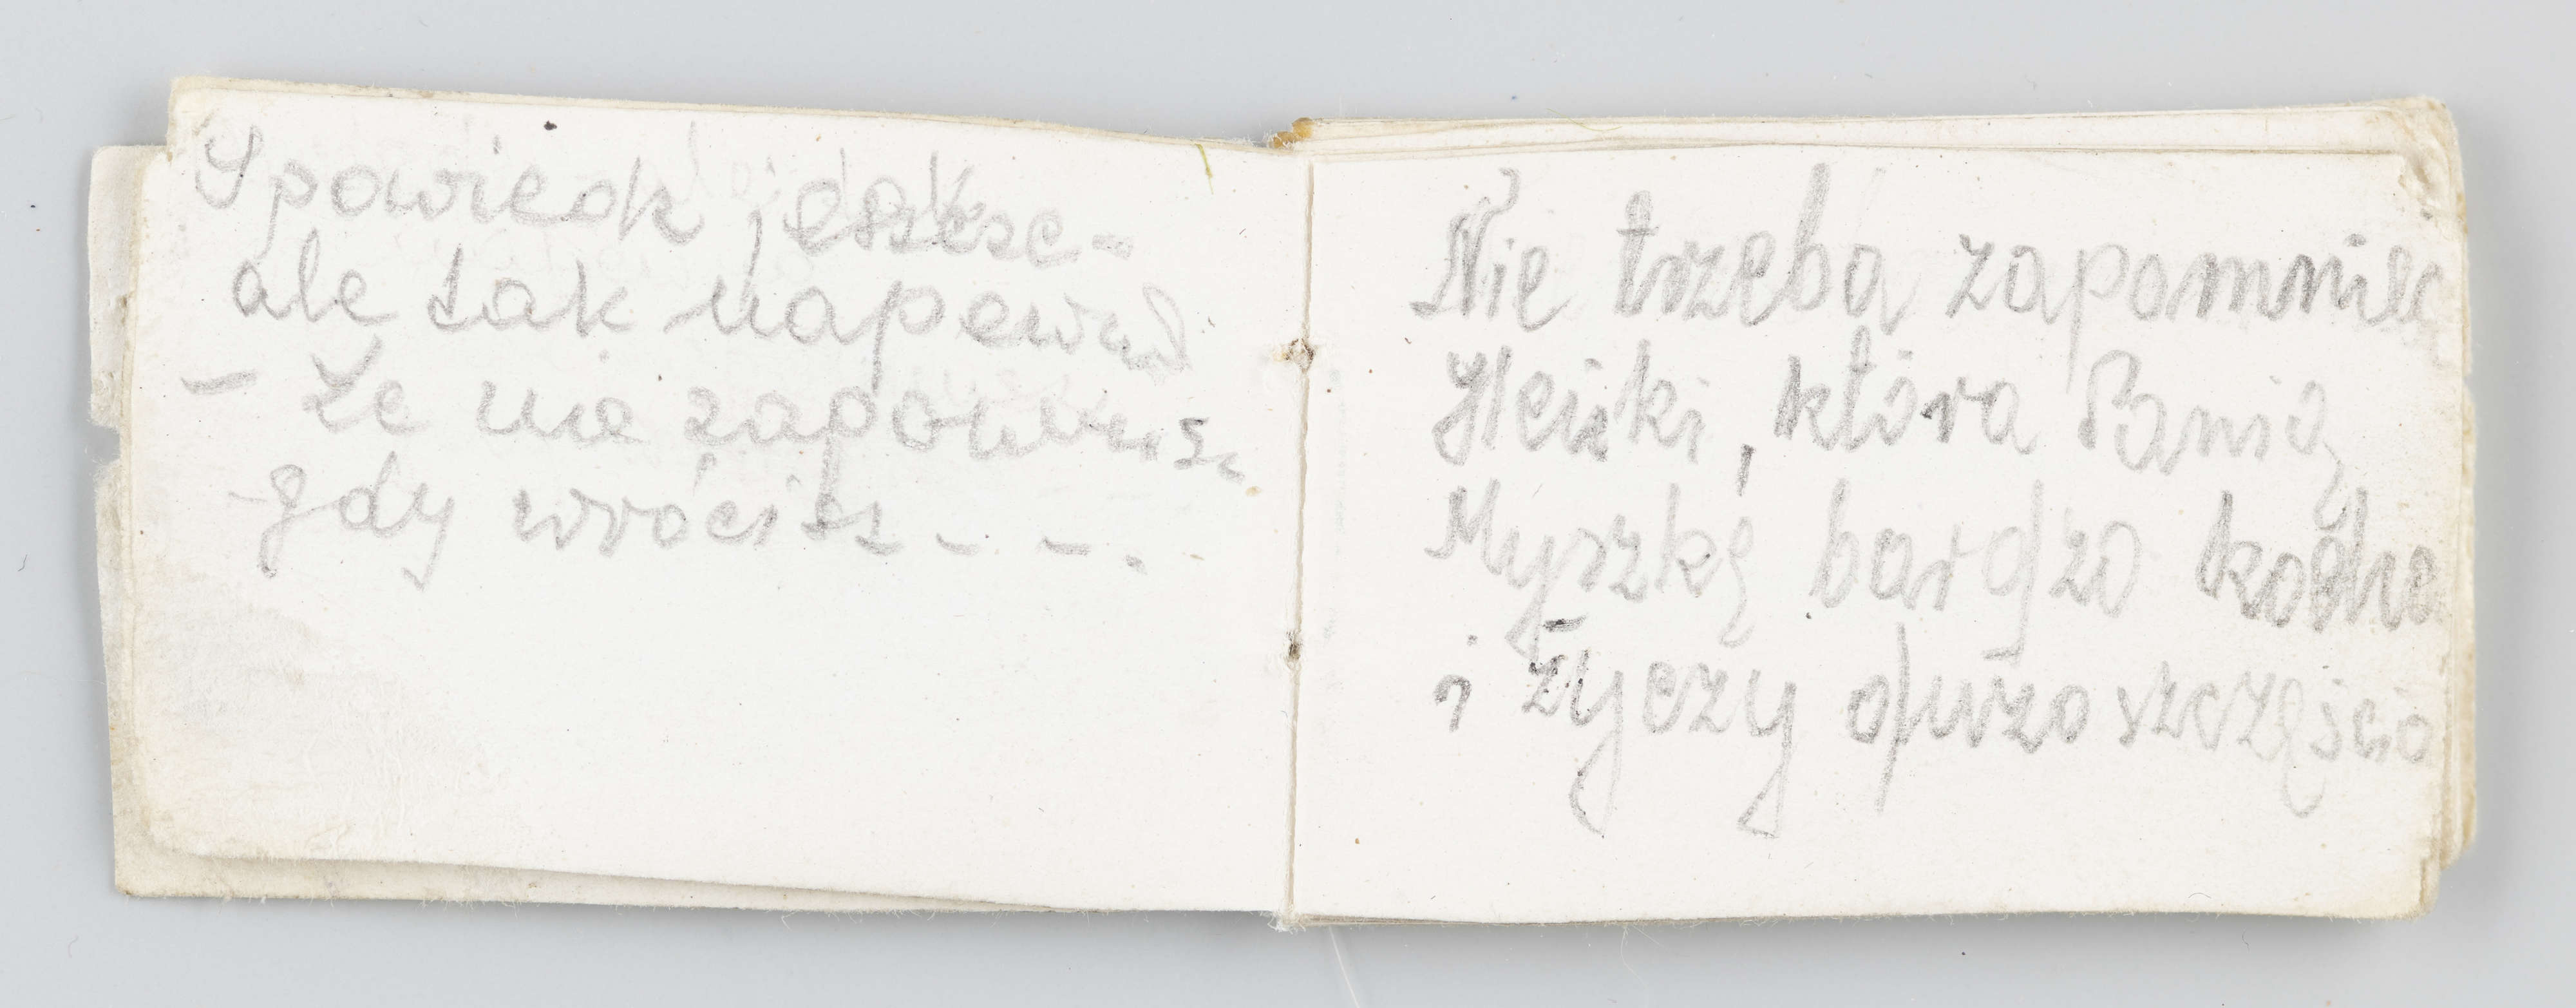 Ipowiedz jeszcze -
ale tak napewno
- Że nie zapomnisz
gdy wrócisz - - -.
Nie trzeba zapomnieć
Heńki, która Panią
Myszkę bardzo kocha
i życzy dużo szczęścia